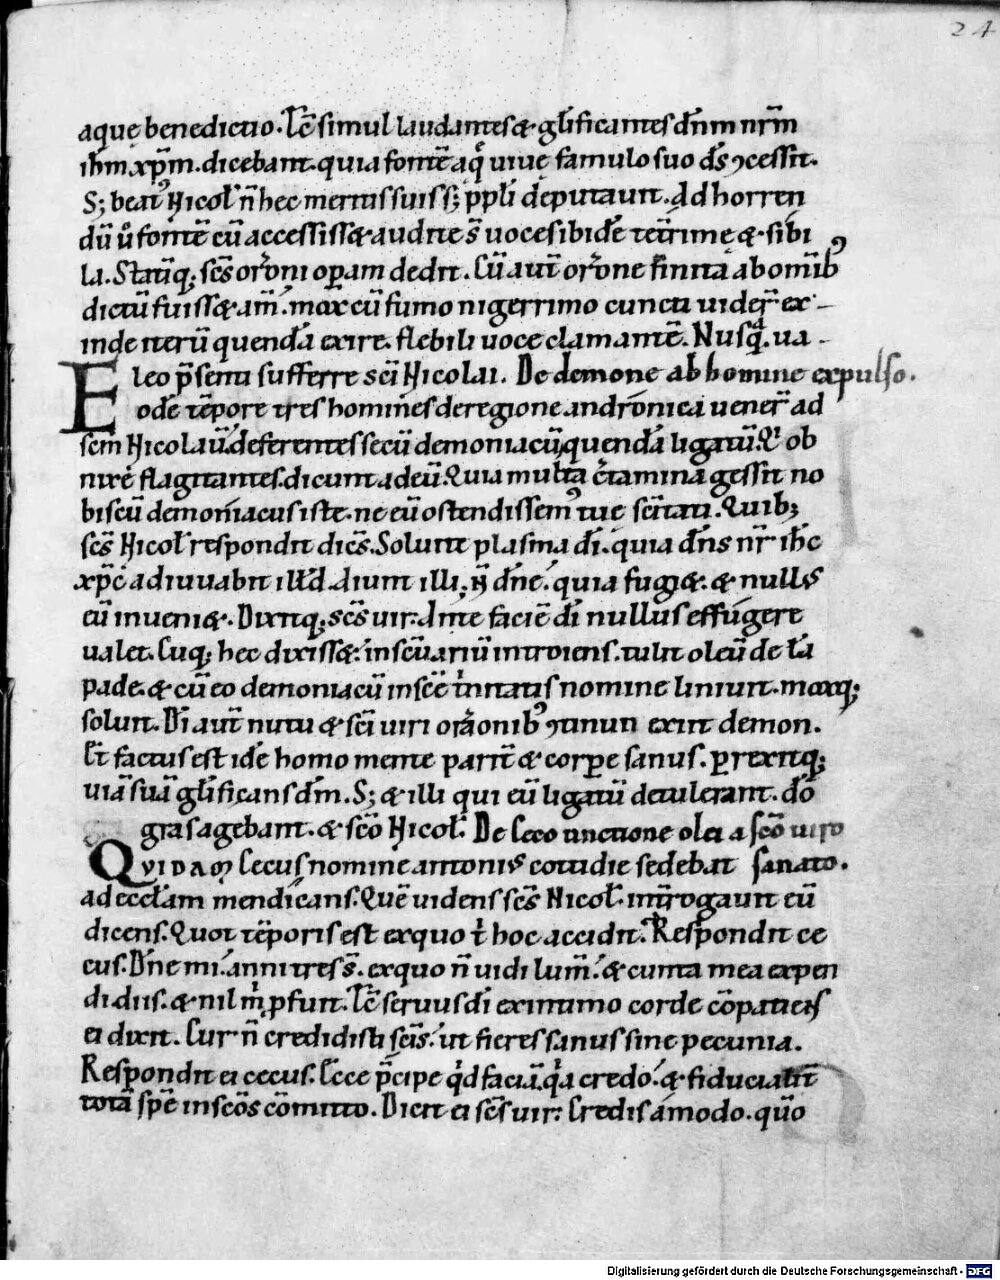 24
aquę benedictio. Tc̄ simul laudantes & gl̄ificantes dn̄m nr̄m
ihm xp̄m. dicebant. quia fontē aq̨ uiuę famulo suo d̄s ꝯcessit.
S; beat᾿ Nicol᾿ n̄ hec meritis suis s; p̄pli deputauit. Ad horren
dū ů fontē cū accessiss& audite s̄ uoces ibidē teterrimę & sibi
la. Statīq; sc̄s orōni opam dedit. Cū aut̄ orōne finita ab om̄ib᾿
dictū fuiss& am̄. mox cū fumo nigerrimo cuncti uider̄ ex-
inde iterū quendā exire. flebili uoce clamantē. Nusq̄. ua-
leo p̄sentiā sufferre sc̄i Nicolai. De demone ab homine expulso.
Eodē tēpore tres homines de regione andronica uener̄ ad
sc̄m Nicolaū. deferentes secū demoniacū quendā ligatū. & ob
nixe flagitantes. dicunt ad eū. Quia multa c̄tamina gessit no
biscū demoniacus iste. ne eū ostendissem᾿ tuę sc̄itati. Quib;
sc̄s Nicol᾿ respondit dicēs. Soluite plasma dī. quia dn̄s nr̄ ihc
xpc̄ adiuuabit illud. Aiunt illi. N̄ dn̄e. quia fugi&. & nullus
eū inueni&. Dixitq; sc̄s uir. Ante faciē dī nullus effugere
ualet. Cūq; hec dixiss&. in sc̄uariū introiens. tulit oleū de lā
pade. & cū eo demoniacū in sc̄e t̄nitatis nomine liniuit. moxq;
soluit. Dī aut̄ nutu & sc̄i uiri orāonib᾿ ꝯtinuo exiit demon.
Et factus est idē homo mente parit̄ & corpe sanus. prexitq;
uiā suā gl̄ificans dm̄. S; & illi qui eū ligatū detulerant. dō
gr̄as agebant. & sc̄o Nicol᾿. De Ceco unctione olei a sc̄o uiro
QVIDAM Cecus nomine antonius cotidie sedebat sanato.
ad eccl̄am mendicans. Quē uidens sc̄s Nicol᾿. int̄rogauit eū
dicens. Quot tēporis est ex quo t̄ hoc accidit. Respondit ce
cus. Dn̄e mi. anni tres s̄. ex quo n̄ uidi lum̄. & cuncta mea expen
di diis. & nil m̄ pfuit. Tc̄ seruus dī ex intimo corde cōpatiens
ei dixit. Cur n̄ credidisti sc̄is. ut fieres sanus sine pecunia.
Respondit ei cecus. Ecce p̄cipe qd faciā. qa credo. & fiducialit̄
totā spē in sc̄os cōmitto. Dicit ei sc̄s uir. Credis amodo. quō
Digitalisierung gefördert durch die Deutsche Forschungsgemeinschaft - DFG